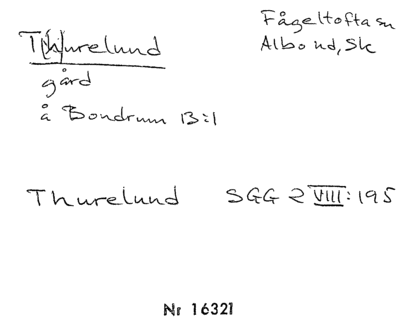 T(h)urelund
Fågeltofta sn
Albo hd, Sk
gård
å Bondrum 13:1
Thurelund SGG 2 VIII: 195
Nr 16321